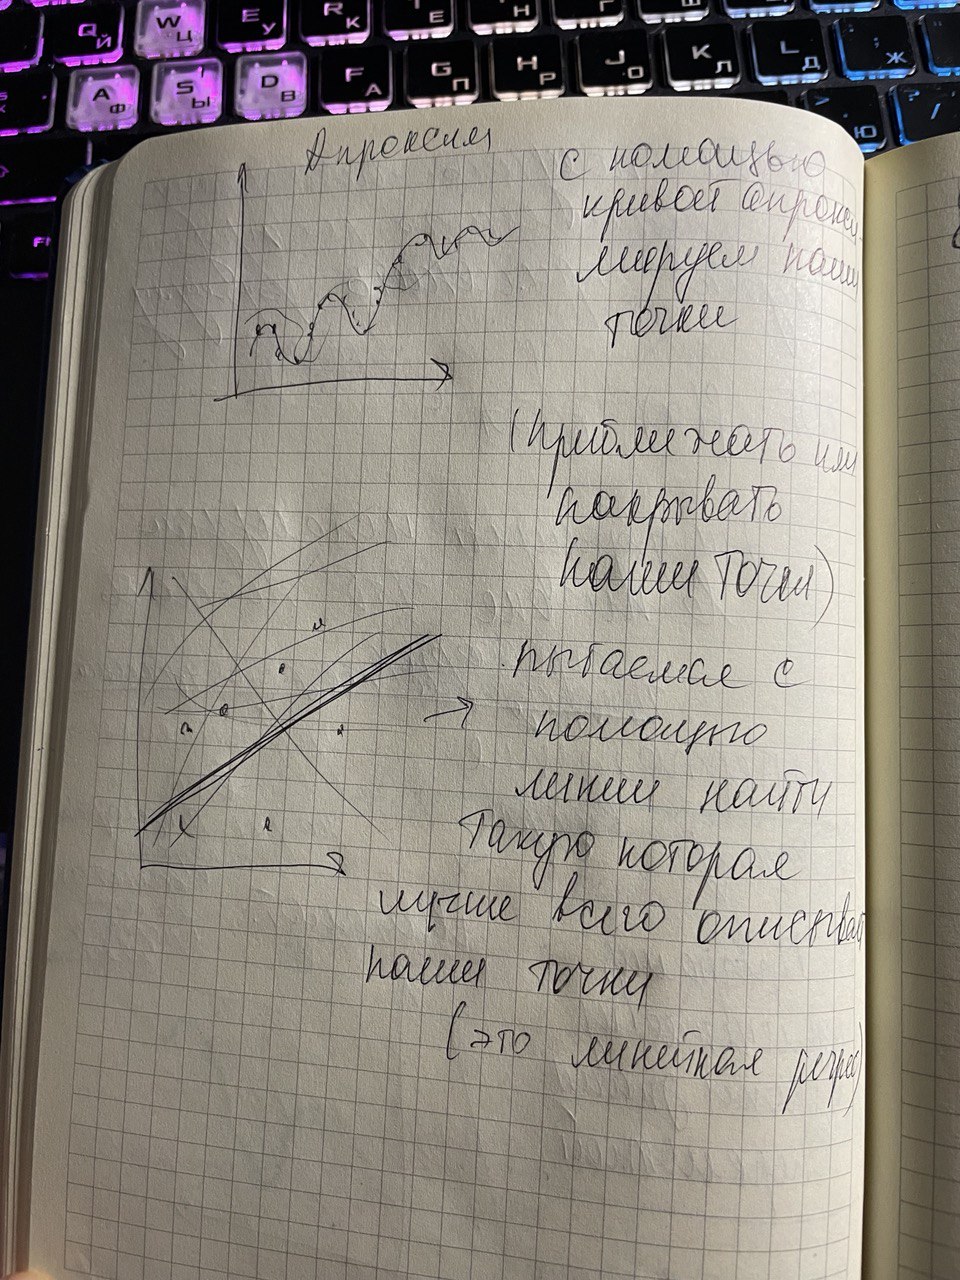 Q Й
W Ц
E У
R К
T Е
Н
Г
A Ф
S Ы
D В
F А
G П
H Р
J О
K Л
L Д
; Ж
>
Ю
? / .
FN
Апроксим
с помощью
кривой апрокси-
мируем наши
точки
(приближать или
покрывать
наши точки)
пытаемся с
→ помощью
линии найти
такую которая
лучше всего описыва
наши точки
(это линейная регрес)